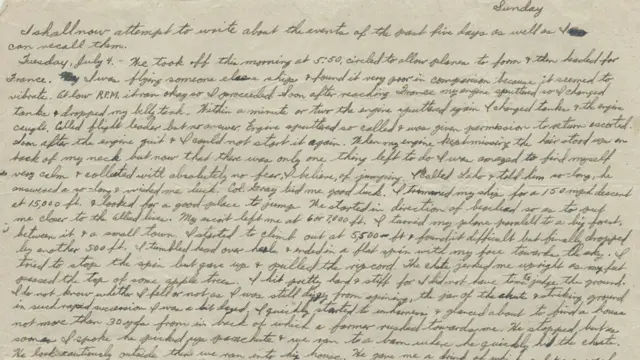 Sunday
I shall now attempt to write about the events of the past five days as well as I
can recall them.
Tuesday, July 4. - We took off this morning at 5:50, circled to allow planes to form & then headed for
France. I was flying someone else's ship & found it very poor in comparison because it seemed to
vibrate. At low R.P.M. it ran okay so I proceeded. Soon after reaching France my engine sputtered so I changed
tanks & dropped my belly tank. Within a minute or two the engine sputtered again. I changed tanks & the engine
caught. Called flight leader but no answer. Engine sputtered so called & was given permission to return escorted.
Soon after the engine quit & I could not start it again. When my engine kept missing the hair stood up on
back of my neck but now that there was only one thing left to do I was amazed to find myself
very calm & collected with absolutely no fear, I believe, of jumping. I called & told him so long, he
answered a so long & wished me luck. Col. Gray bid me good luck. I trimmed my ship for a 150 mph descent
at 15,000 ft. & looked for a good place to jump. We started in direction of so as to put
me closer to the allied lines. My escort left me at 6 or 7,000 ft. I turned my plane parallel to a big forest,
between it & a small town. I started to climb out at 5,500 ft & found it difficult but finally dropped
by another 500 ft. I tumbled head over heels & ended in a flat spin with my face towards the sky. I
tried to stop the spin but gave up & pulled the rip cord. The chute jerked me upright as my feet
passed the top of some apple trees. I hit pretty hard & stiff for I did not have time to judge the ground.
I do not know whether I fell or not as I was still dizzy from spinning, the jar of the chute & striking ground
in such rapid succession I was a bit dazed. I quickly started to unharness & glanced about to find a house
not more than 30 yds from in back of which a farmer rushed towards me. He stopped, but as
soon as I spoke he picked up parachute & we ran to a barn where he quickly hid the chute.
He look cautiously outside then we ran into his house. He gave me a